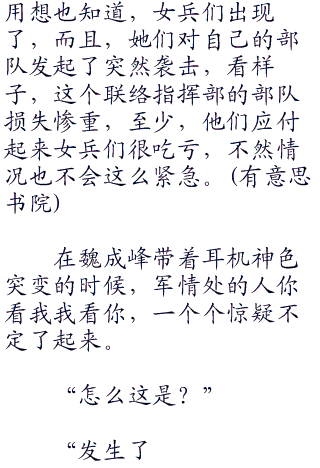 用想也知道，女兵们出现
了，而且，她们对自己的部
队发起了突然袭击，看样
子，这个联络指挥部的部队
损失惨重，至少，他们应付
起来女兵们很吃亏，不然情
况也不会这么紧急。(有意思
书院)
在魏成峰带着耳机神色
突变的时候，军情处的人你
看我我看你，一个个惊疑不
定了起来。
“怎么这是？”
“发生了